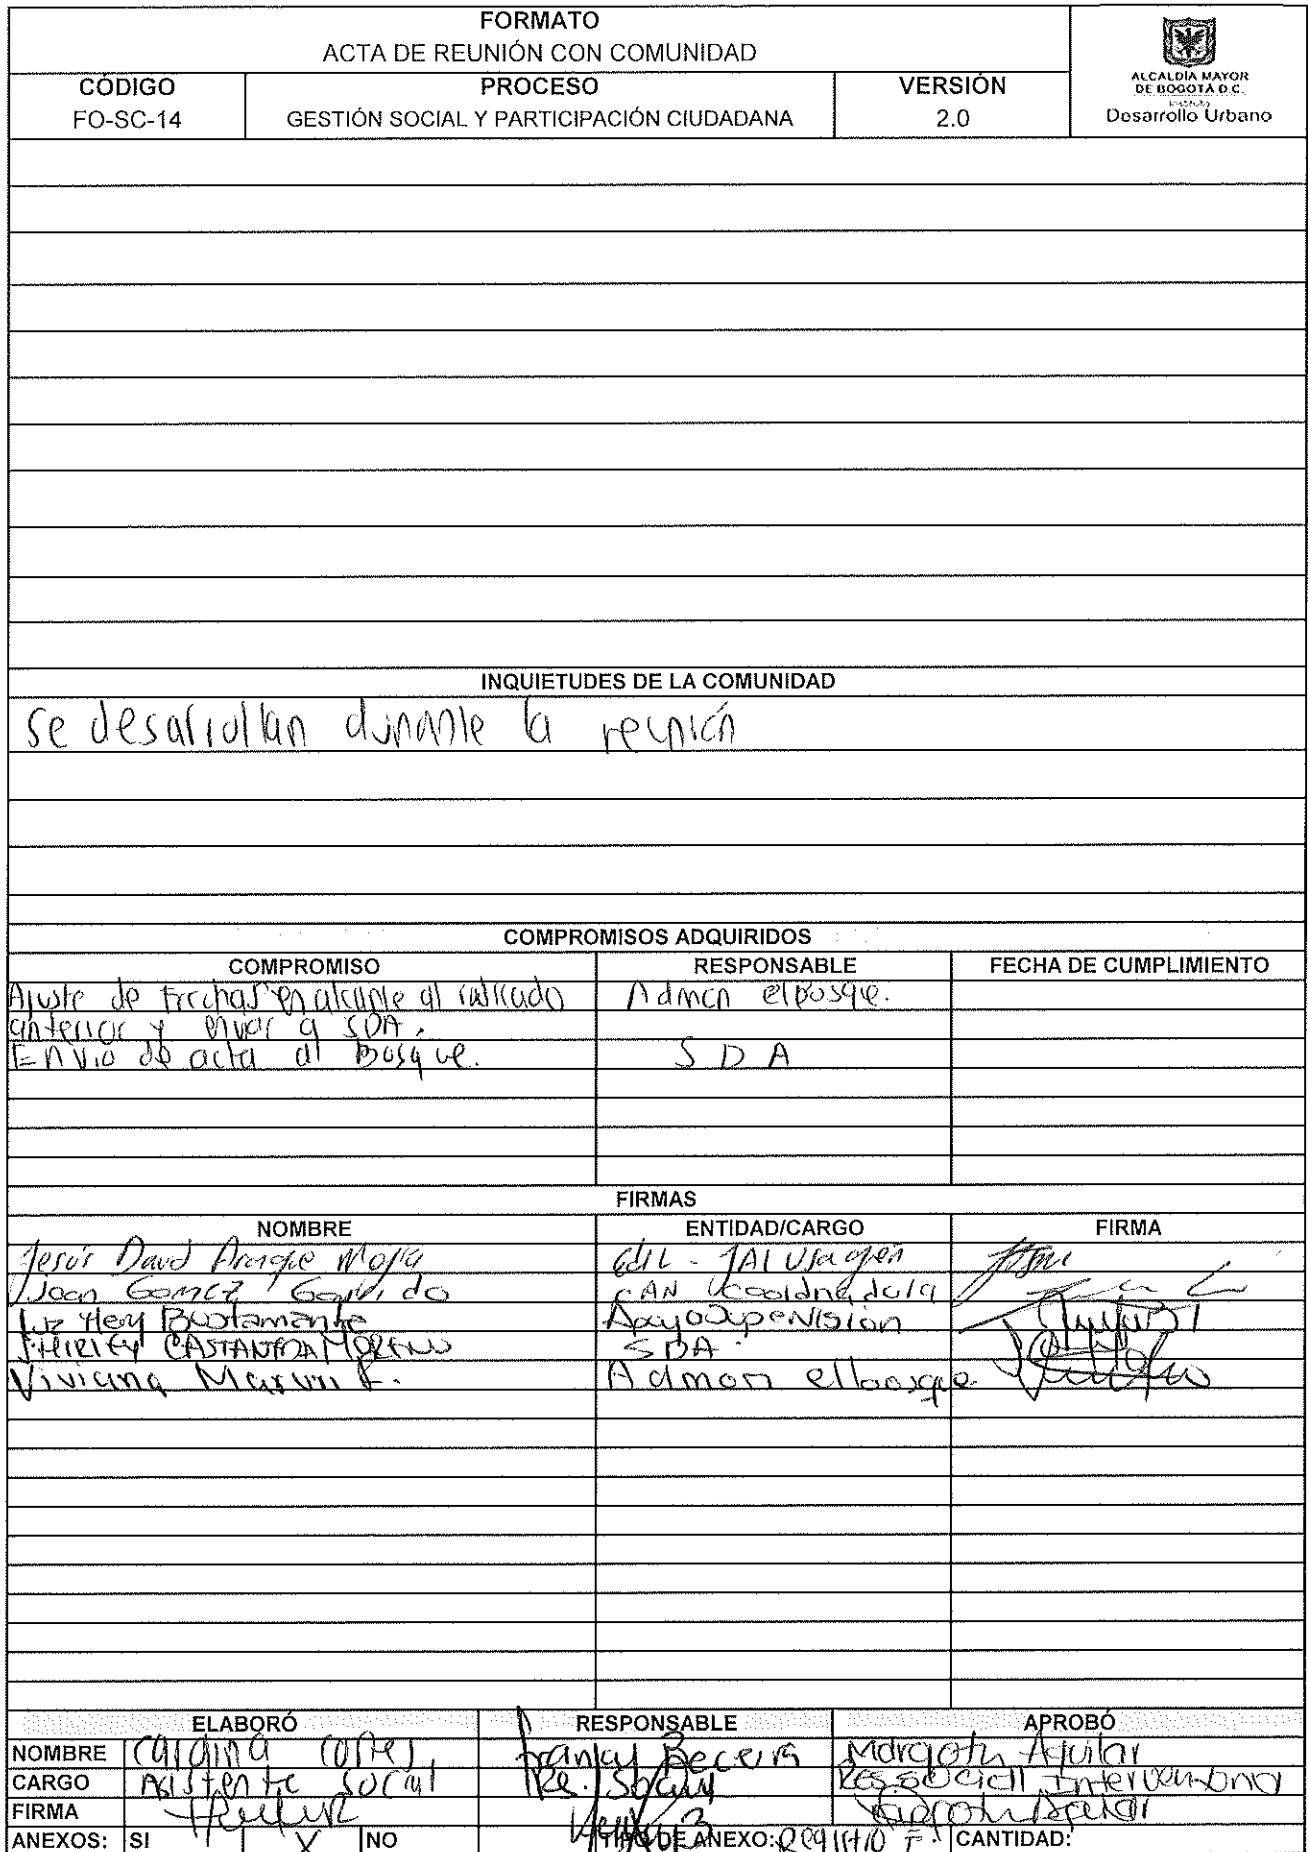 FORMATO
ACTA DE REUNIÓN CON COMUNIDAD
CÓDIGO PROCESO VERSIÓN
FO-SC-14 GESTIÓN SOCIAL Y PARTICIPACIÓN CIUDADANA 2.0
ALCALDÍA MAYOR
DE BOGOTÁ D.C.
Instituto
Desarrollo Urbano
INQUIETUDES DE LA COMUNIDAD
se desarrollan durante la reunión
COMPROMISOS ADQUIRIDOS
COMPROMISO RESPONSABLE FECHA DE CUMPLIMIENTO
Ajuste de fechas en alcance al radicado Admon elbosque.
anterior y enviar a SDA.
Envio de acta al Bosque. SDA
FIRMAS
NOMBRE ENTIDAD/CARGO FIRMA
Jesús David Araque Mejia Edil - JAL Usaquén
Joan Gomez CAN Coordinadora
Luz Hery Bustamante Apoyo Supervision
SHIRLEY CASTAÑEDA MORENO SDA
Viviana Marin F. Admon elbosque
ELABORÓ RESPONSABLE APROBÓ
NOMBRE Carolina Cortes Franky Becerra Margoth Aguilar
CARGO Asistente Social Re. Social Res. social Interventoria
FIRMA Margoth Aguilar
ANEXOS: SI X NO TIPO DE ANEXO: Registro F. CANTIDAD: